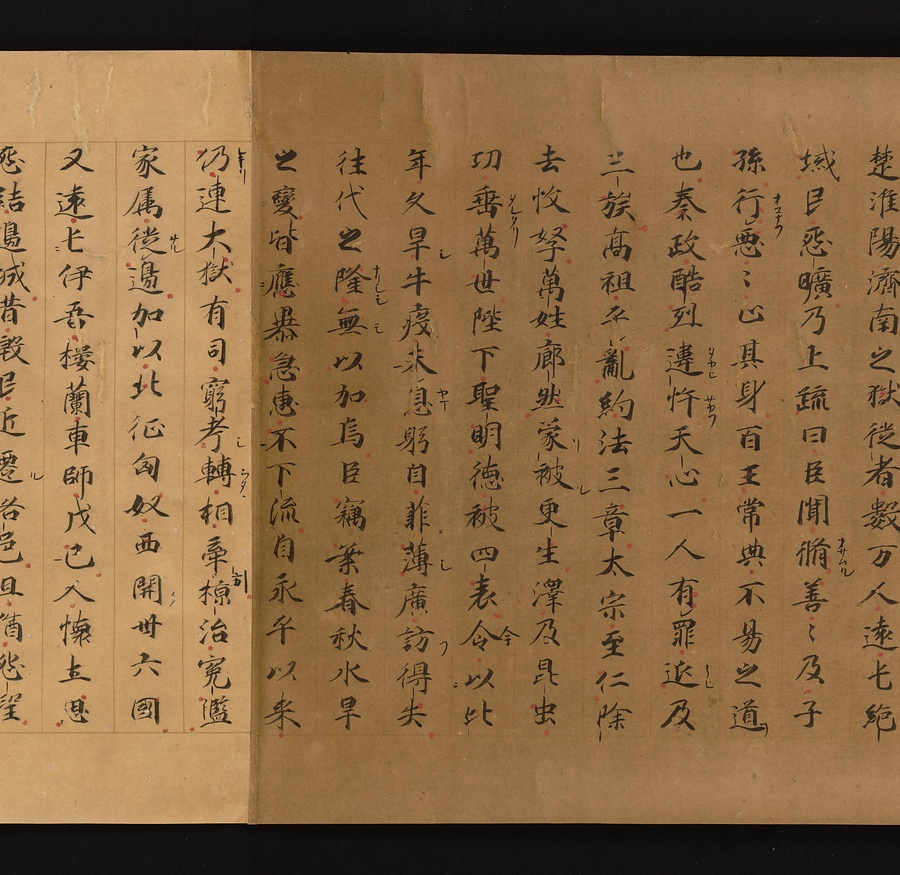 楚淮陽濟南之獄徙者數万人遠屯絶
域民怨曠乃上疏曰臣聞脩善〻及子
孫行惡〻止其身百王常典不易之道
也秦政酷烈違忤天心一人有罪延及
三族高祖平亂約法三章太宗至仁除
去收孥萬姓廓然蒙被更生澤及昆虫
功垂萬世陛下聖明德被四表令以比
今
年久旱牛疫未息躬自菲薄廣訪得失
往代之隆無以加焉臣竊案春秋水旱
之變皆應暴急惠不下流自永平以来
仍連大獄有司窮考轉相牽掠治寃濫
家属徙邊加以北征匈奴西開卅六國
又遠屯伊吾樓蘭車師戊己人懷土思
怨結邊城昔殷民近遷洛邑且猶怨望